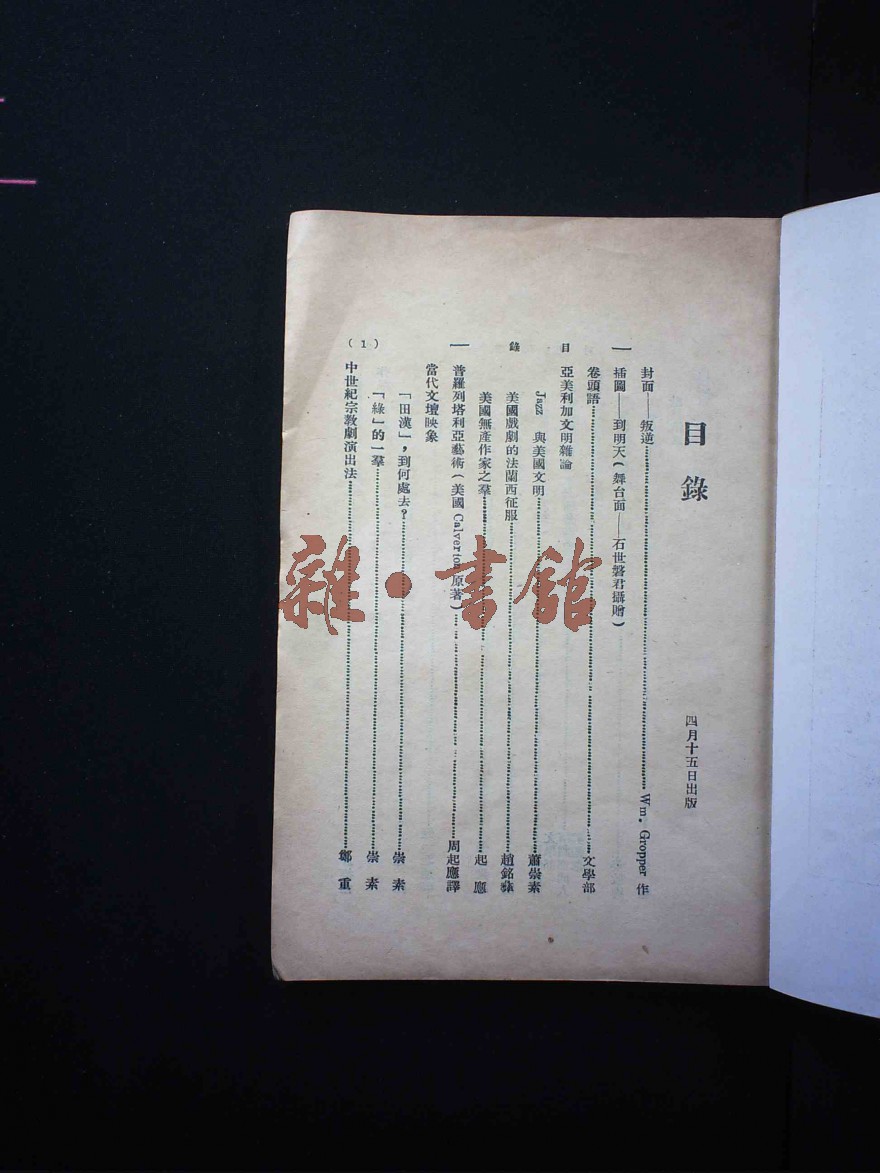 目錄
四月十五日出版
封面——叛逆 Wm. Gropper 作
插圖——到明天(舞台面——石世磐君攝贈)
卷頭語 文學部
亞美利加文明雜論
Jazz 與美國文明 蕭崇素
美國戲劇的法蘭西征服 趙銘彝
美國無產作家之羣 起應
普羅列塔利亞藝術(美國Calverton原著) 周起應譯
當代文壇映象
「田漢」,到何處去? 崇素
「綠」的一羣 崇素
中世紀宗教劇演出法 鄭重
— 目錄 — (1)
雜·書館